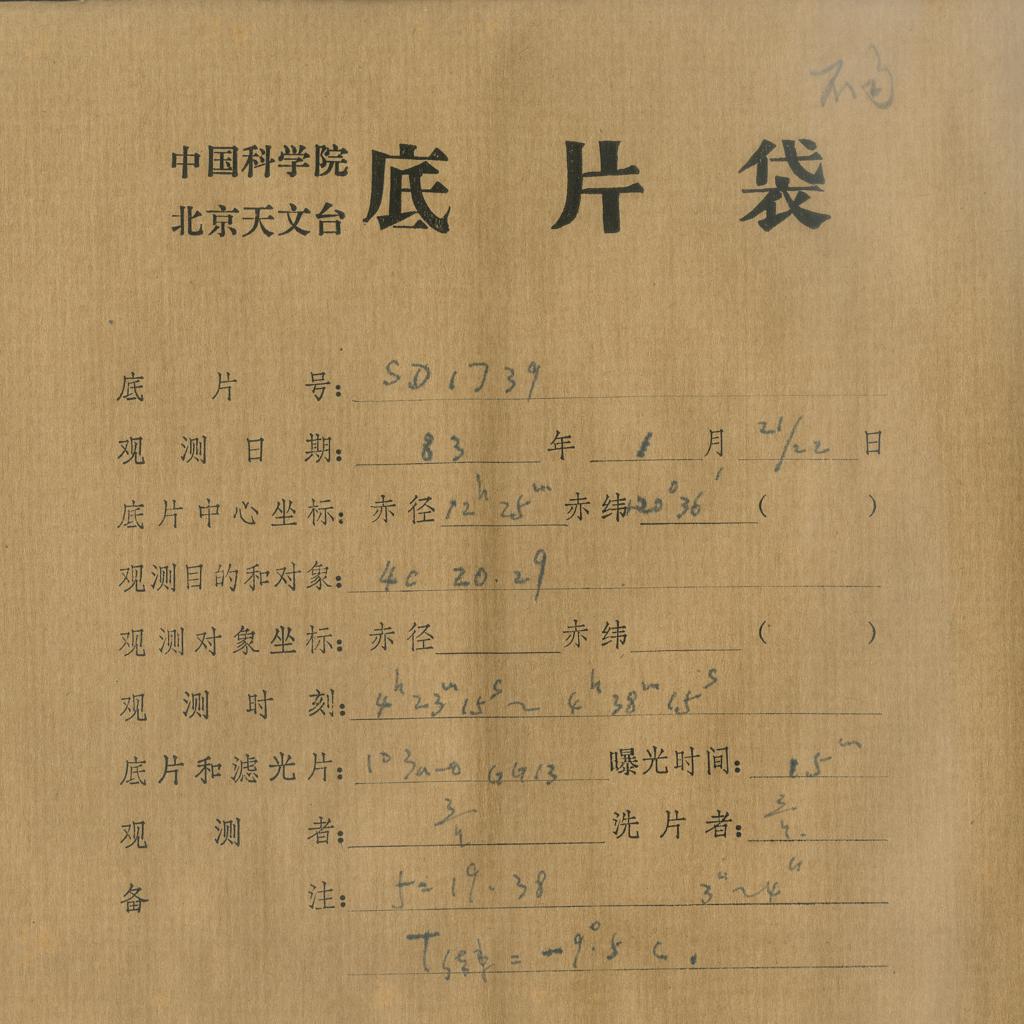 中国科学院
北京天文台
底片袋
底片号: SD1739
观测日期: 83年1月21/22日
底片中心坐标: 赤径12h25m赤纬+20°36′( )
观测目的和对象: 4C 20.29
观测对象坐标: 赤径 赤纬 ( )
观测时刻: 4h23m15s~4h38m15s
底片和滤光片: 103a-O GG13 曝光时间: 15m
观测者:
洗片者:
备注: f=19.38 3″~4″
T = -9°.5 C.